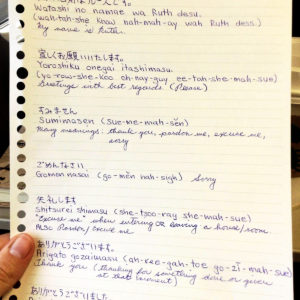 Watashi no namae wa Ruth desu.
(wah-tah-she know nah-mah-ay wah Ruth dess.)
My name is Ruth.
宜しくお願いいたします。
Yoroshiku onegai itashimasu
(yo-row-she-koo oh-nay-guy ee-tah-she-mah-sue)
Greetings with best regards. (Please)
すみません
Sumimasen (sue-me-mah-sen)
Many meanings: thank you, pardon me, excuse me,
sorry
ごめんなさい
Gomen nasai (go-men nah-sigh) Sorry
失礼します
Shitsurei shimasu (she-tsoo-ray she-mah-sue)
"Excuse me" when entering OR leaving a house/room.
Also Pardon/excuse me
ありがとうございます。
Arigato gozaimasu (ah-ree-gah-toe go-zī-mah-sue)
Thank you (thanking for something done or given
at that moment)
ありがとうございました